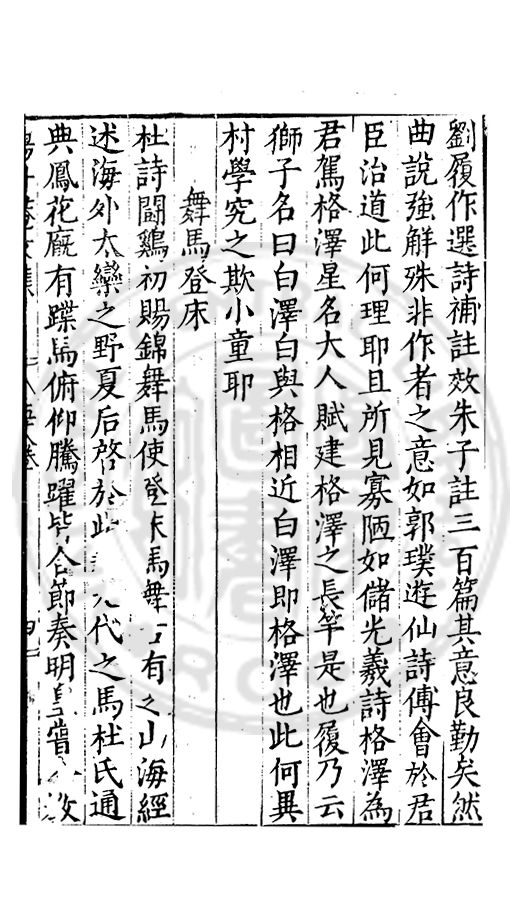 劉履作選詩補註效朱子註三百篇其意良勤矣然
曲說強解殊非作者之意如郭璞遊仙詩傅會於君
臣治道此何理耶且所見寡陋如儲光羲詩格澤為
君駕格澤星名大人賦建格澤之長竿是也履乃云
獅子名曰白澤白與格相近白澤即格澤也此何異
村學究之欺小童耶
舞馬登床
杜詩鬪鷄初賜錦舞馬使登床馬舞有之山海經
述海外太樂之野夏后啓於此代之馬杜氏通
典鳳花廐有蹀馬俯仰騰躍皆合節奏明皇嘗教